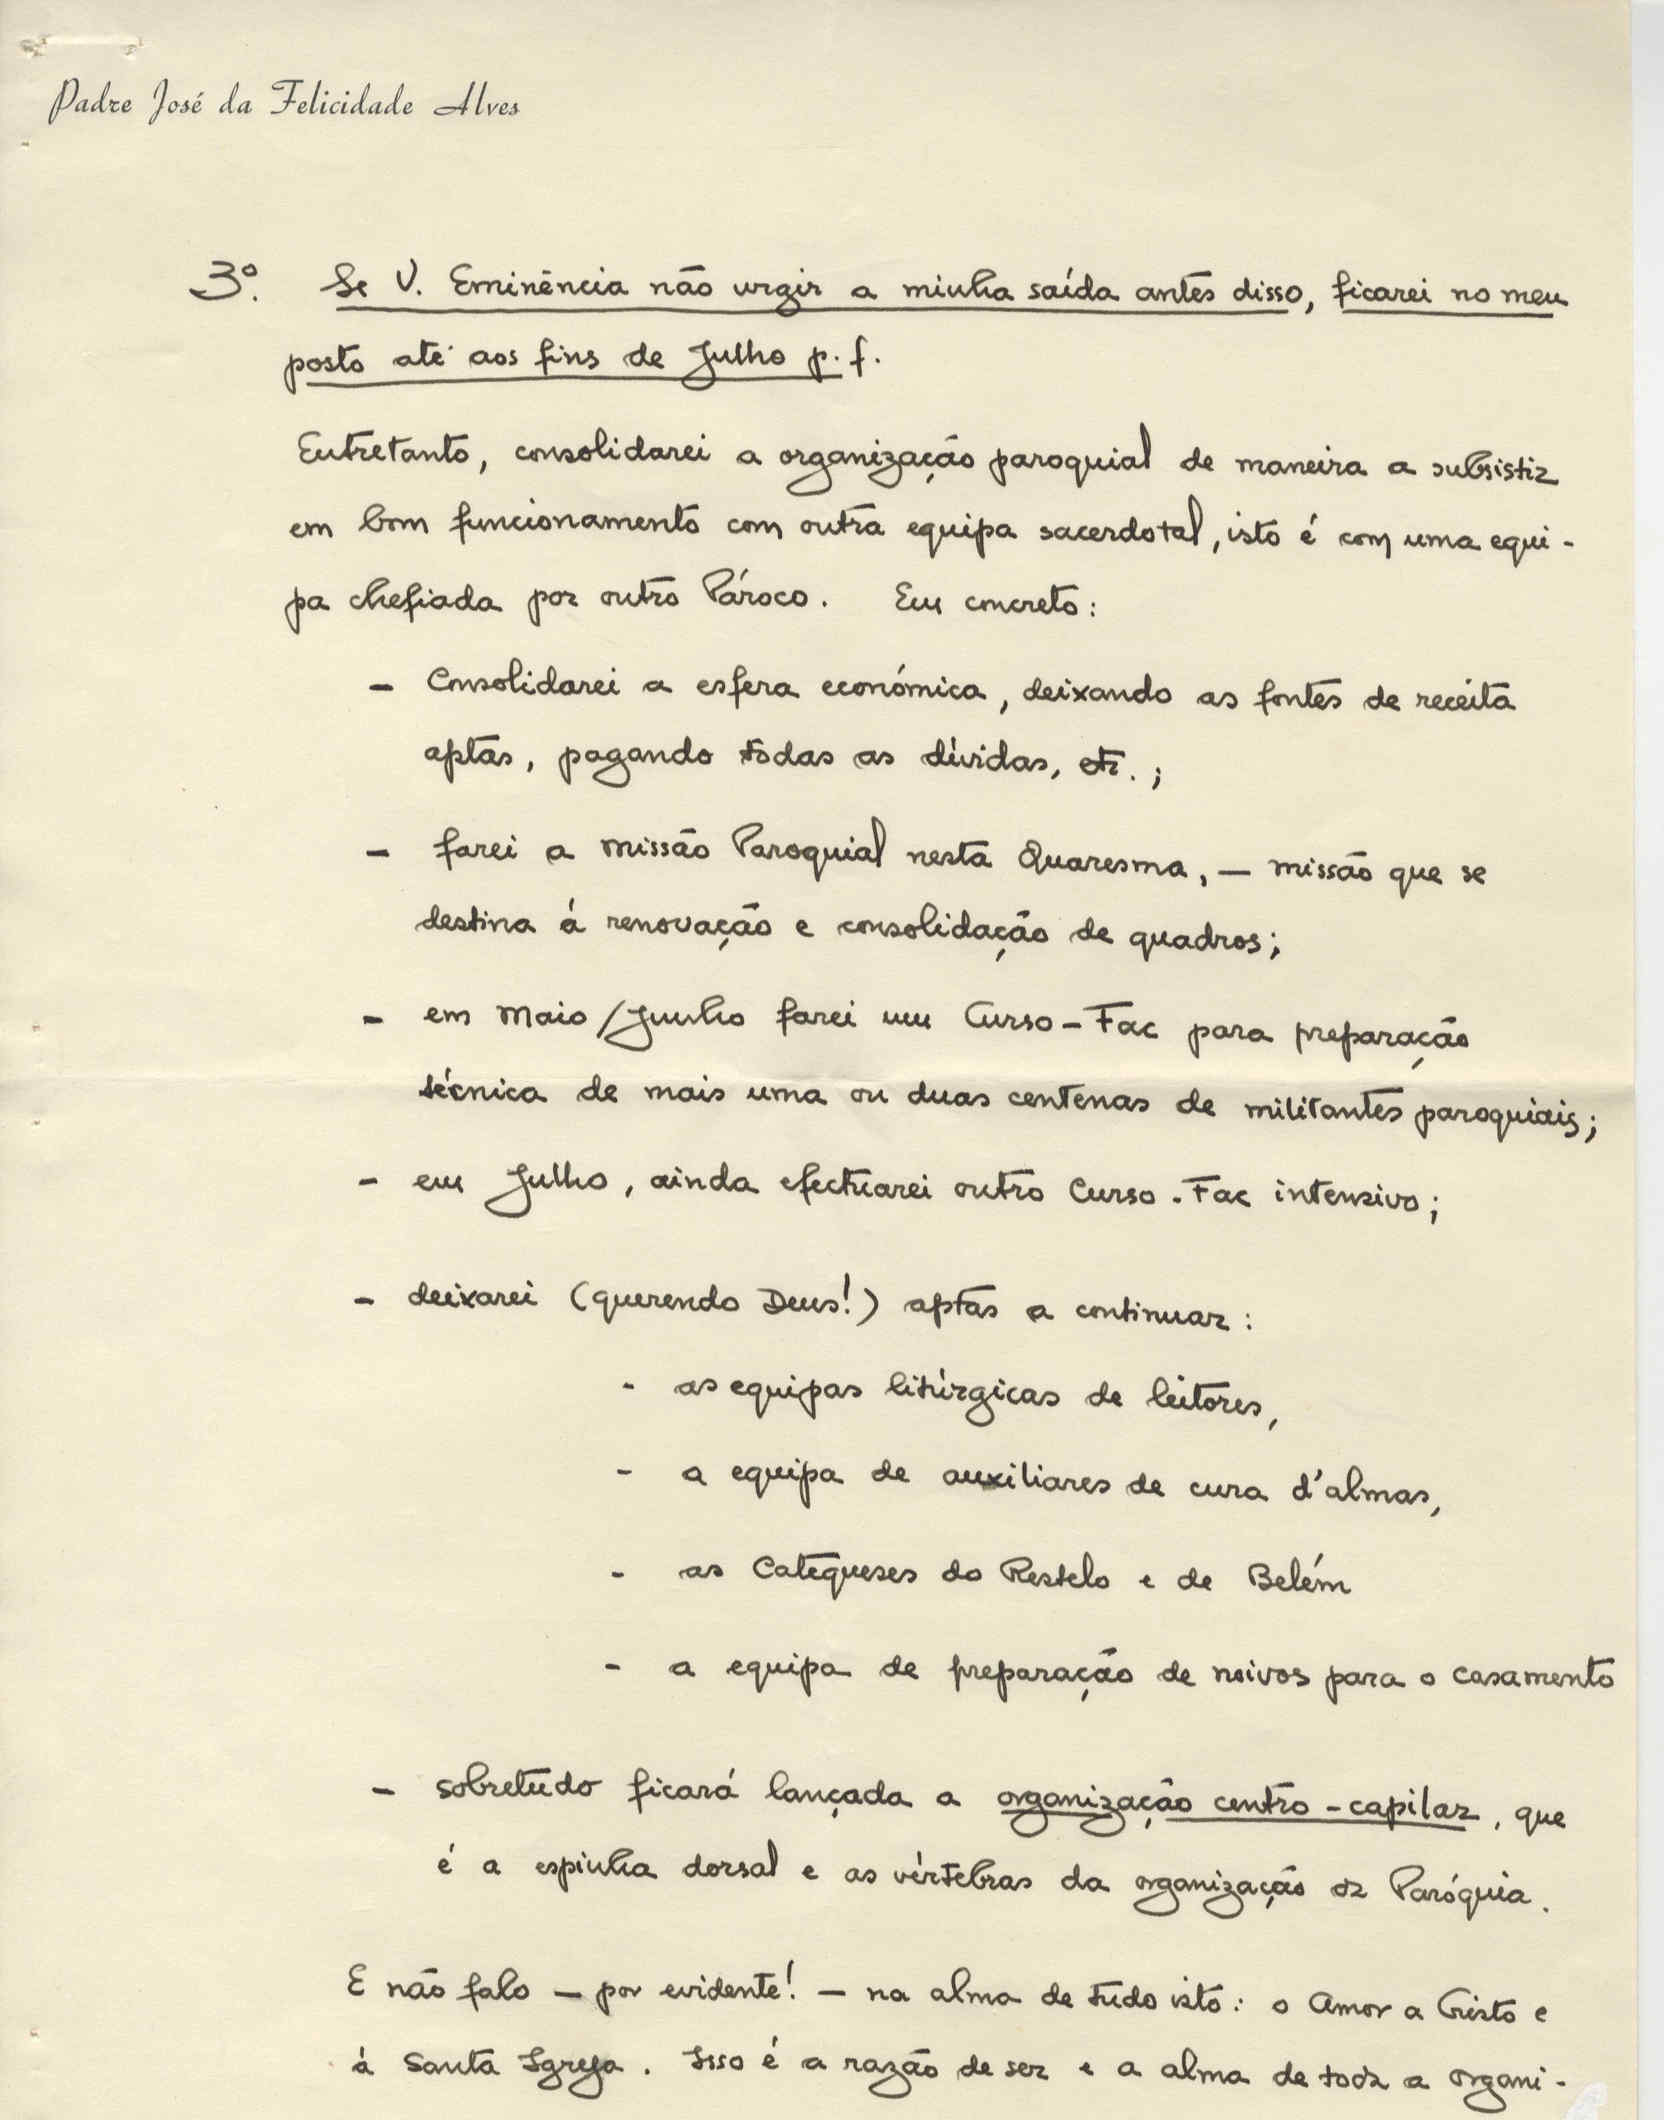 Padre José da Felicidade Alves
3º. Se V. Eminência não urgir a minha saída antes disso, ficarei no meu
posto até aos fins de Julho p. f.
Entretanto, consolidarei a organização paroquial de maneira a subsistir
em bom funcionamento com outra equipa sacerdotal, isto é com uma equi-
pa chefiada por outro Pároco. Em concreto:
- Consolidarei a esfera económica, deixando as fontes de receita
aptas, pagando todas as dívidas, etc.;
- farei a missão Paroquial nesta Quaresma, — missão que se
destina á renovação e consolidação de quadros;
- em Maio/Junho farei um Curso-Fac para preparação
técnica de mais uma ou duas centenas de militantes paroquiais;
- em Julho, ainda efectuarei outro Curso-Fac intensivo;
- deixarei (querendo Deus!) aptas a continuar:
- as equipas litúrgicas de leitores,
- a equipa de auxiliares de cura d'almas,
- as Catequeses do Restelo e de Belém
- a equipa de preparação de noivos para o casamento
- sobretudo ficará lançada a organização centro-capilar, que
é a espinha dorsal e as vértebras da organização da Paróquia.
E não falo — por evidente! — na alma de tudo isto: o Amor a Cristo e
á Santa Igreja. Isso é a razão de ser e a alma de toda a organi-